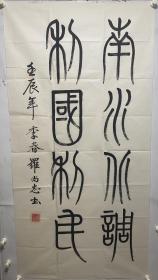 南水北調
利國利民
壬辰年李春